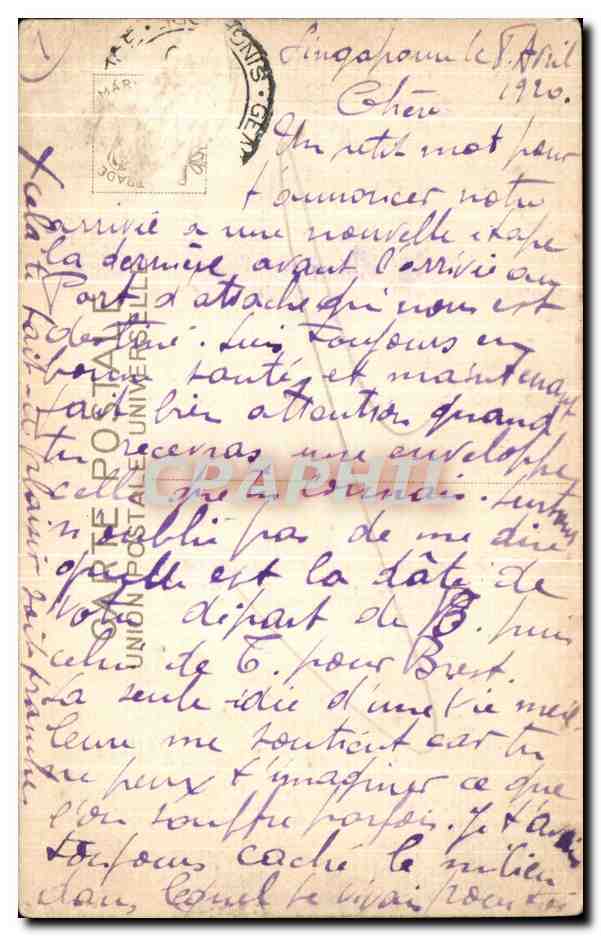 Singapour le 8 Avril
1920.
Chère
Un petit mot pour
t'annoncer notre
arrivée a une nouvelle étape
la dernière avant l'arrivée au
Port d'attache qui nous est
destiné. Suis toujours en
bonne santé, et maintenant
fait bien attention quand
tu recevras une enveloppe
celle que tu connais. Surtout
n'oublie pas de me dire
quelle est la dâte de
votre départ de B. puis
celui de T. pour Brest.
La seule idée d'une vie meil-
leure me soutient car tu
ne peux t'imaginer ce que
l'on souffre parfois. Je t'avais
toujours caché le milieu
dans lequel je vivais pour
X cela te fait-il plaisir sois franche.
CARTE POSTALE
UNION POSTALE UNIVERSELLE
MAR
TRADE
SING
CPAPHIL